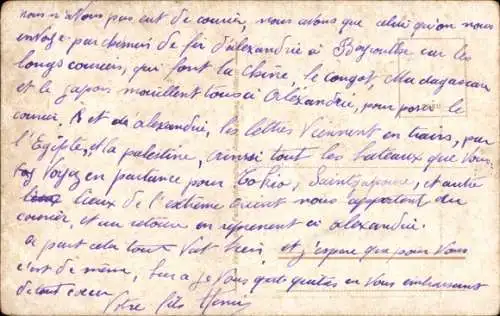 nous n'avons pas eut de courier, nous avons que celui qu'on nous
envoye par chemin de fer d'alexandrie à Beyrouth car les
longs courriers, qui font la chine, le congo, Madagascar
et le japon mouillent tous à Alexandrie, pour poser le
courier. Et de alexandrie, les lettres viennent en trains, par
l'Egipte, et la palestine, ainsi tout les bateaux que vous
voyez en partance pour Tokio, et autre
lieux de l'extrême orient nous apportent du
courier, et au retour en reprennent à alexandrie.
a part cela tout vat bien, et j'espere que pour vous
c'est de même, vous quitte en vous embrassant
de tout coeur
Votre fils Henri